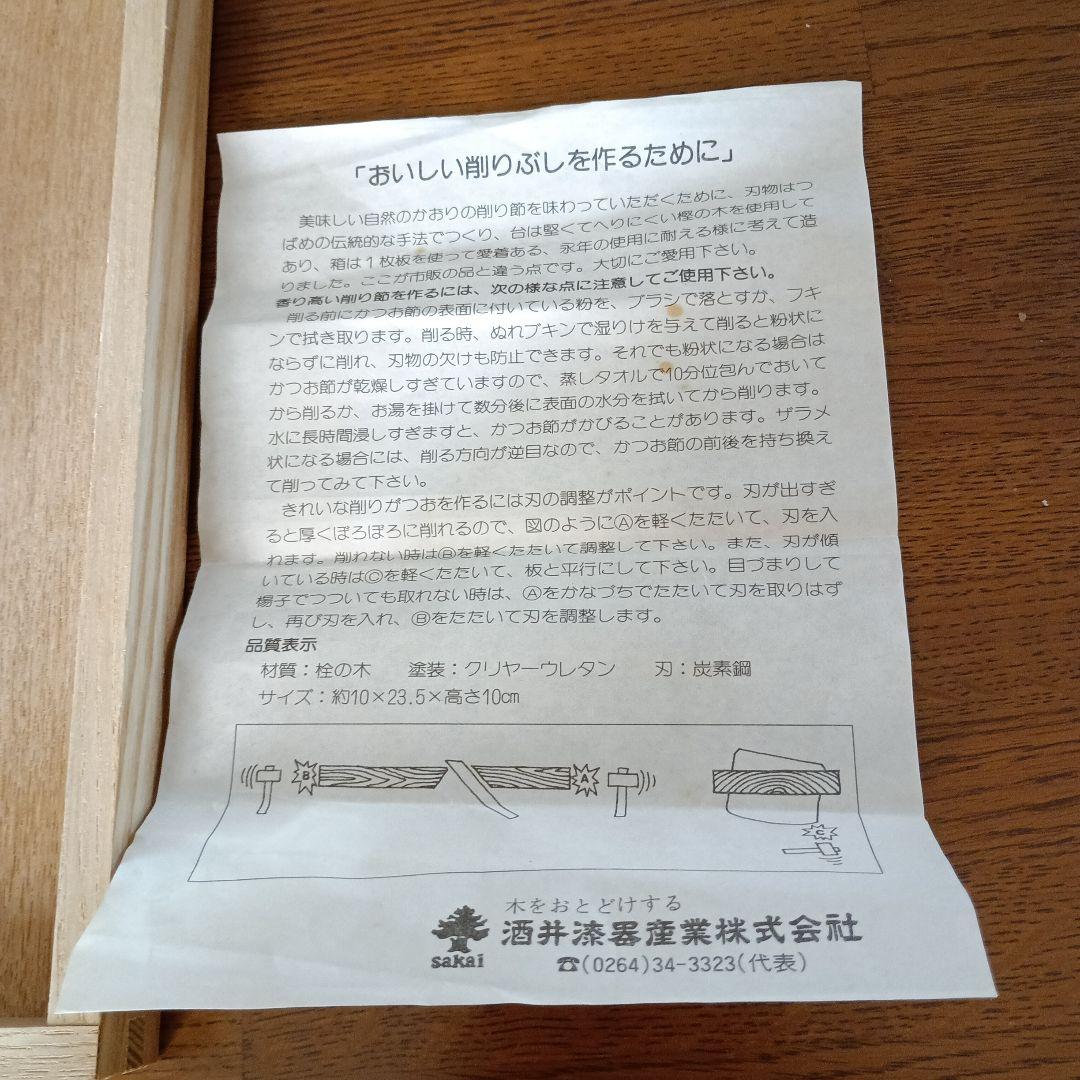 「おいしい削りぶしを作るために」
美味しい自然のかおりの削り節を味わっていただくために、刃物はつ
ばめの伝統的な手法でつくり、台は堅くてへりにくい樫の木を使用して
あり、箱は1枚板を使って愛着ある、永年の使用に耐える様に考えて造
りました。ここが市販の品と違う点です。大切にご愛用下さい。
香り高い削り節を作るには、次の様な点に注意してご使用下さい。
削る前にかつお節の表面に付いている粉を、ブラシで落とすか、フキ
ンで拭き取ります。削る時、ぬれブキンで湿りけを与えて削ると粉状に
ならずに削れ、刃物の欠けも防止できます。それでも粉状になる場合は
かつお節が乾燥しすぎていますので、蒸しタオルで10分位包んでおいて
から削るか、お湯を掛けて数分後に表面の水分を拭いてから削ります。
水に長時間浸しすぎますと、かつお節がかびることがあります。ザラメ
状になる場合には、削る方向が逆目なので、かつお節の前後を持ち換え
て削ってみて下さい。
きれいな削りがつおを作るには刃の調整がポイントです。刃が出すぎ
ると厚くぼろぼろに削れるので、図のようにⒶを軽くたたいて、刃を入
れます。削れない時はⒷを軽くたたいて調整して下さい。また、刃が傾
いている時はⒸを軽くたたいて、板と平行にして下さい。目づまりして
楊子でつついても取れない時は、Ⓐをかなづちでたたいて刃を取りはず
し、再び刃を入れ、Ⓑをたたいて刃を調整します。
品質表示
材質：栓の木　塗装：クリヤーウレタン　刃：炭素鋼
サイズ：約10×23.5×高さ10cm
B A
C
木をおとどけする
sakai 酒井漆器産業株式会社
☎(0264)34-3323(代表)